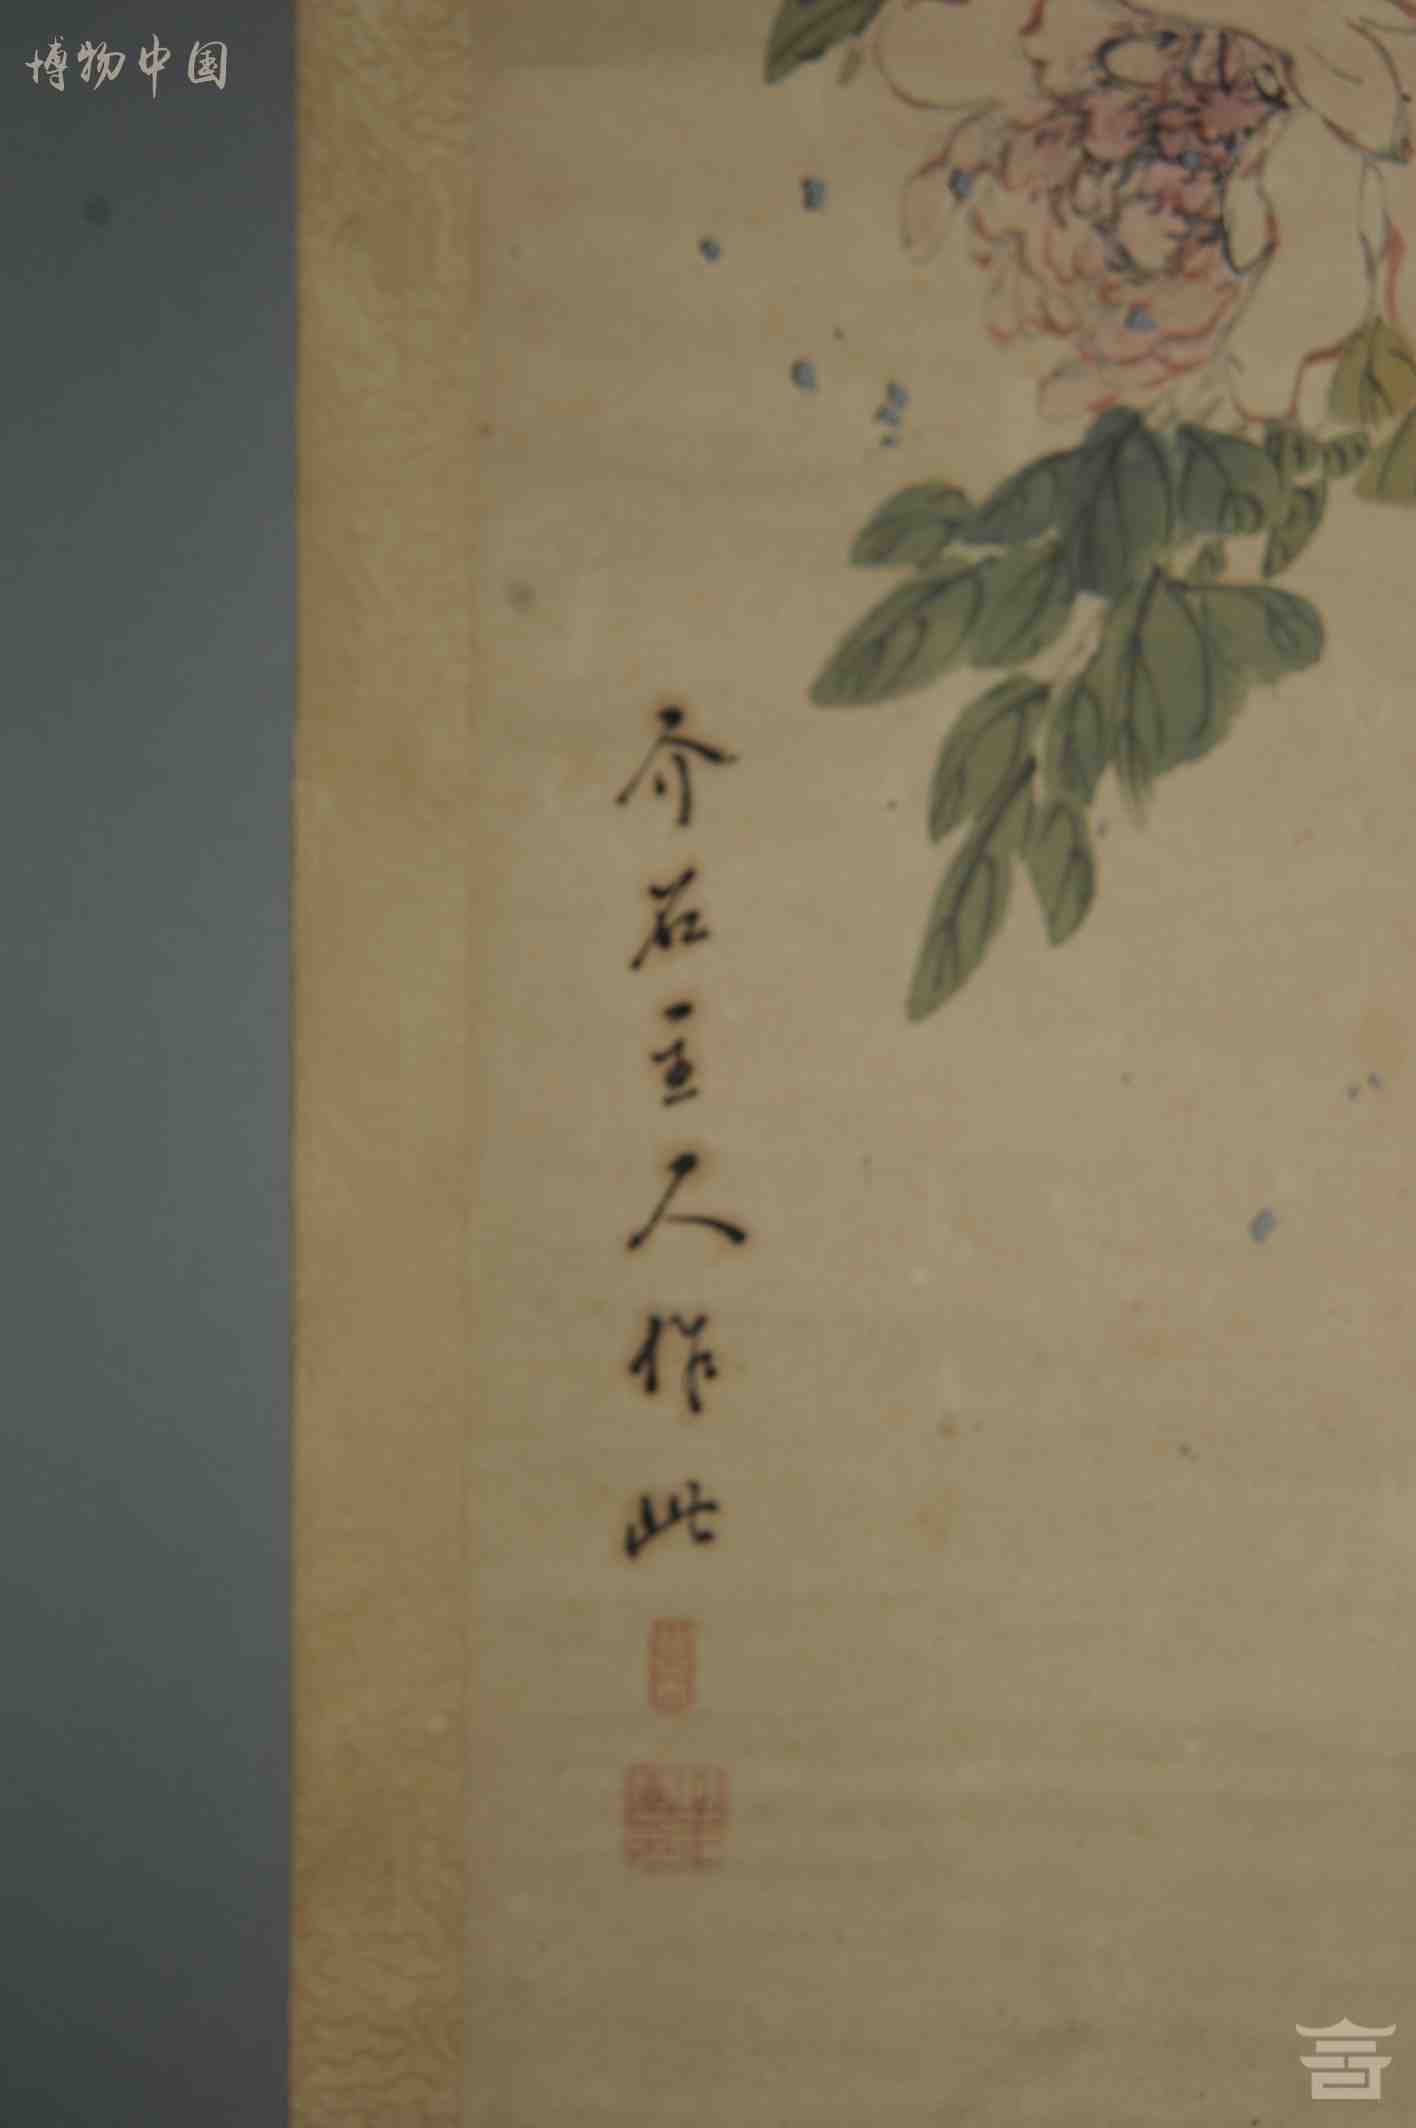 博物中国
介石主人作此